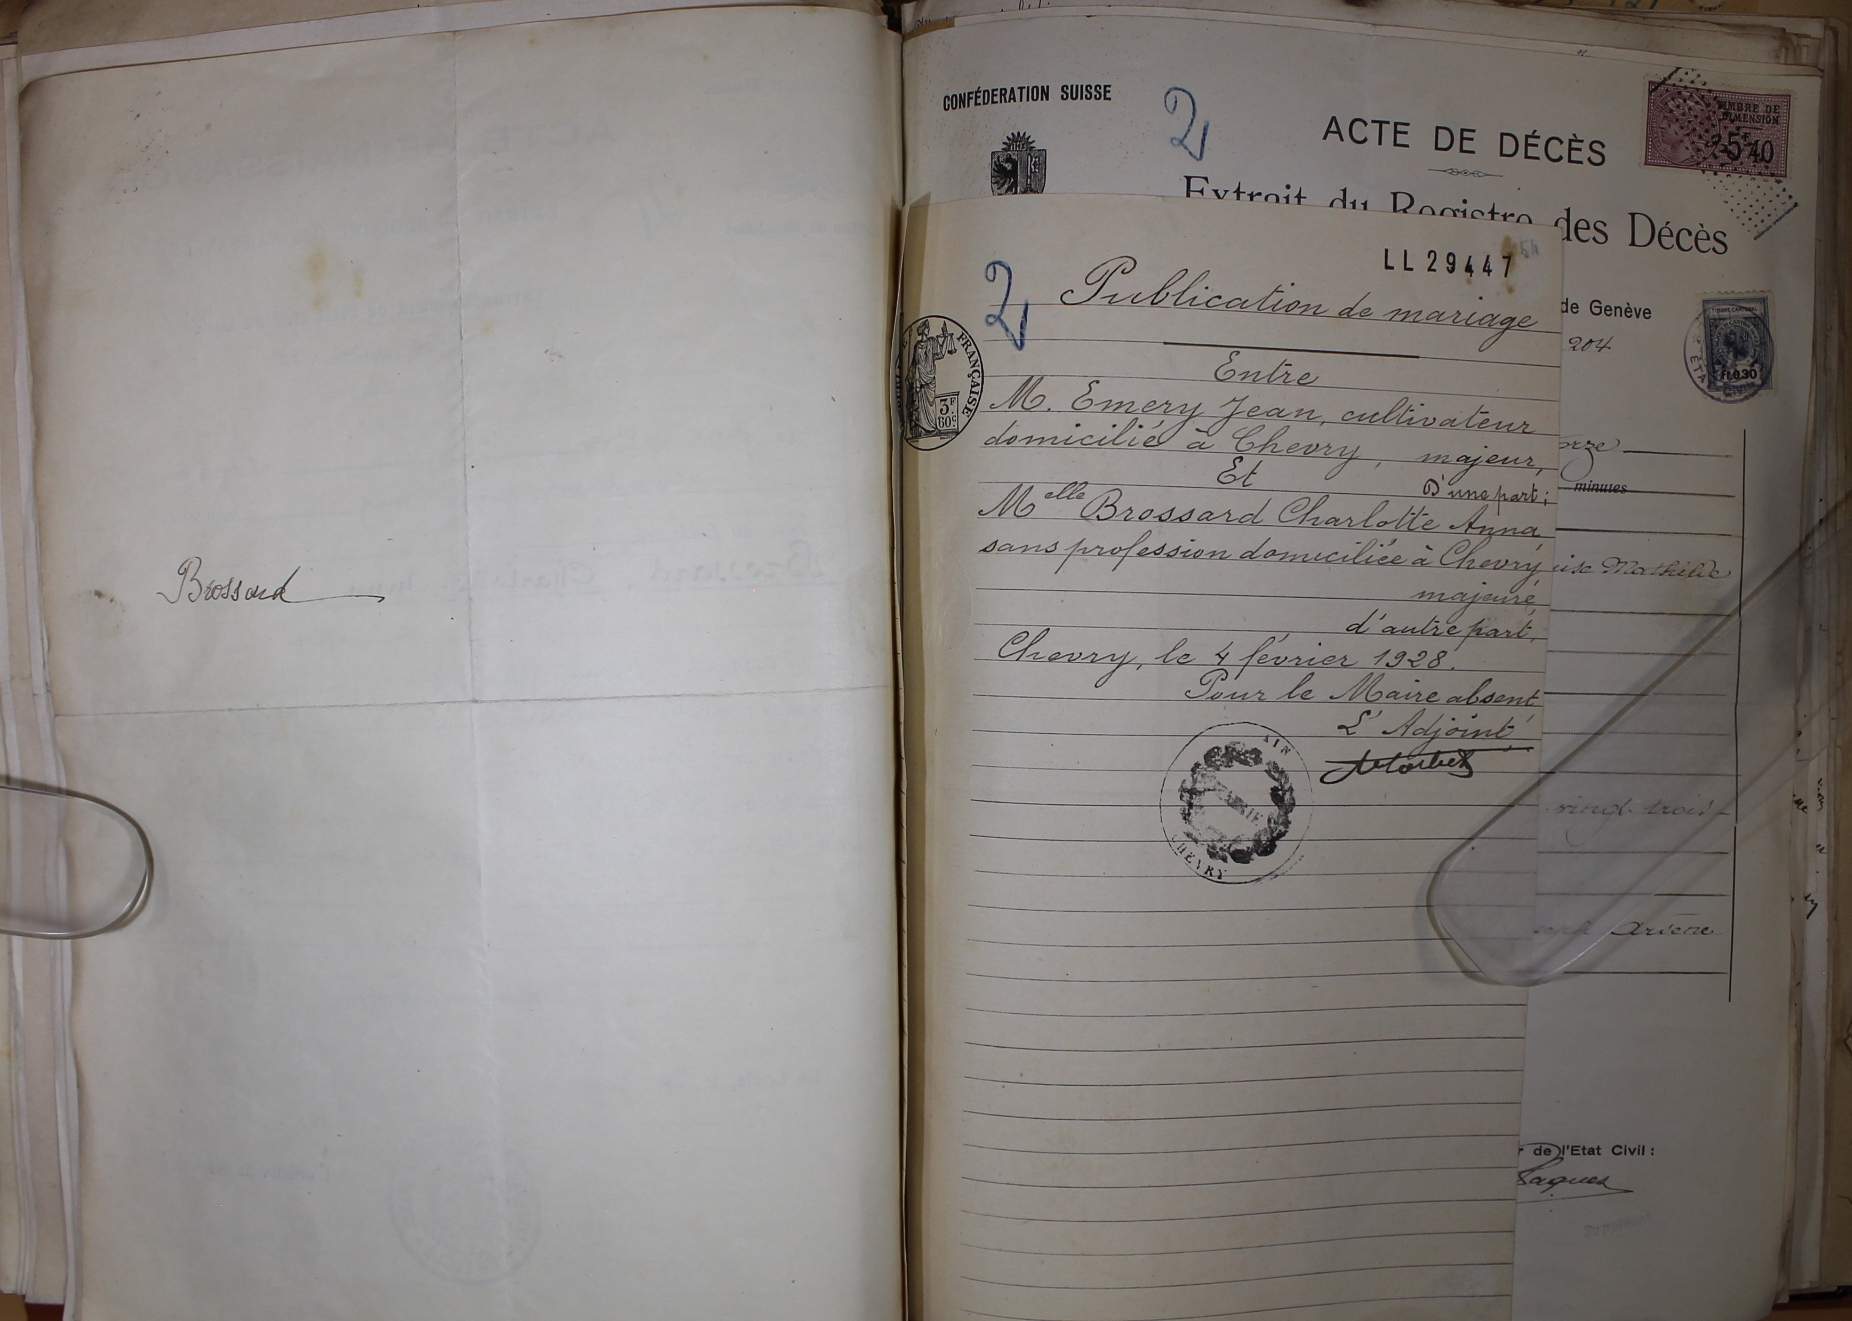 Brossard
CONFÉDERATION SUISSE
2
ACTE DE DÉCÈS
TIMBRE DE
DIMENSION
Extrait du Registre des Décès
LL 29447
2
Publication de mariage
de Genève
204
FRANÇAISE
3F
60c
Fr. 0.30
Entre
M. Emery Jean, cultivateur
domicilié à Chevry, majeur,
Et D'une part;
minutes
Melle Brossard Charlotte Anna,
sans profession domiciliée à Chevry,
Mathilde
majeure,
d'autre part,
Chevry, le 4 février 1928.
Pour le Maire absent
L'Adjoint,
AIN
MAIRIE
CHEVRY
vingt trois
Ariène
de l'Etat Civil :